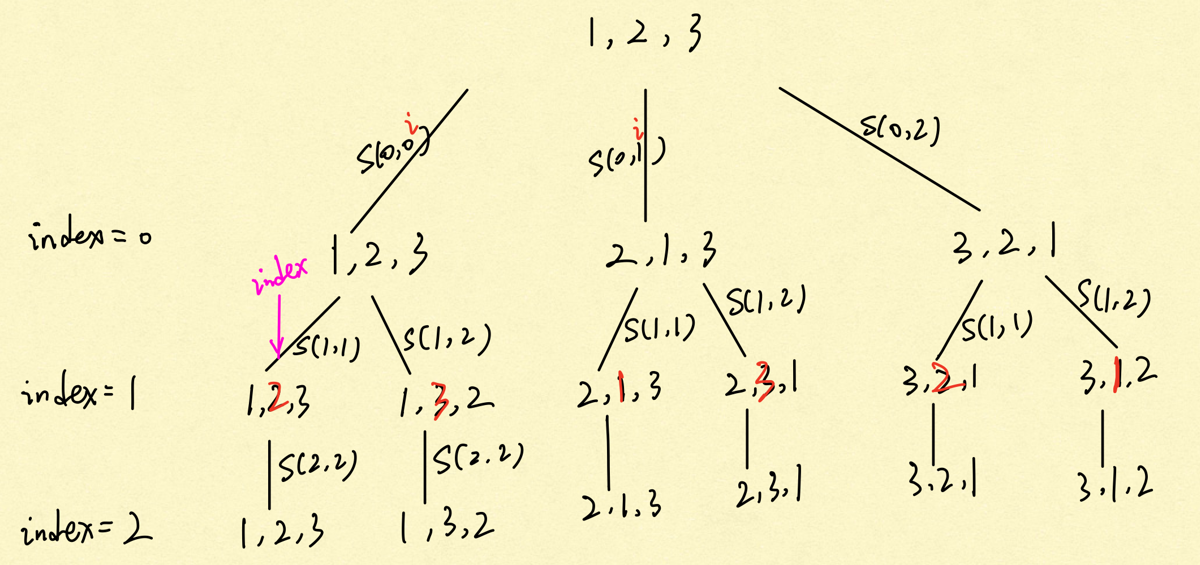 1, 2, 3
i
i
S(0,0) S(0,1) S(0,2)
index=0 1,2,3 2,1,3 3,2,1
index
S(1,1) S(1,2) S(1,1) S(1,2) S(1,1) S(1,2)
index=1 1,2,3 1,3,2 2,1,3 2,3,1 3,2,1 3,1,2
S(2,2) S(2.2)
index=2 1,2,3 1,3,2 2,1,3 2,3,1 3.2,1 3.1.2